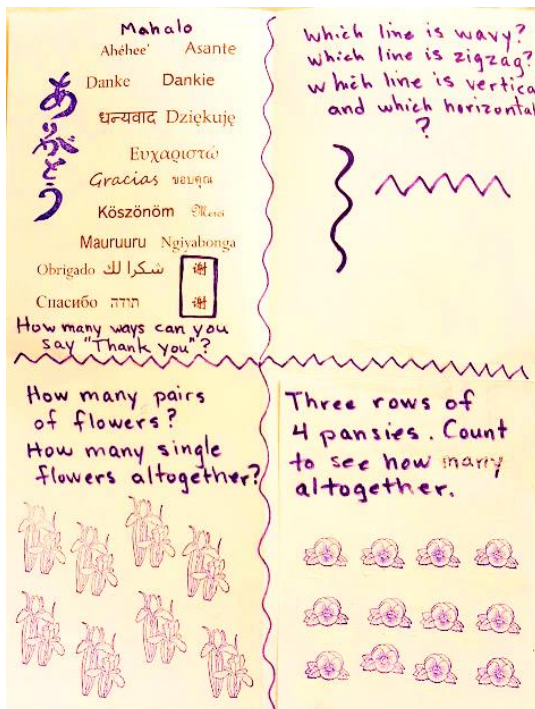 Mahalo
Ahéhee' Asante
Danke Dankie
ありがとう
धन्यवाद Dziękuję
Ευχαριστώ
Gracias ขอบคุณ
Köszönöm Merci
Mauruuru Ngiyabonga
Obrigado شكرا لك 谢
Спасибо תודה 谢
How many ways can you
say "Thank you"?
Which line is wavy?
which line is zigzag?
which line is vertical
and which horizontal
?
How many pairs
of flowers?
How many single
flowers altogether?
Three rows of
4 pansies. Count
to see how many
altogether.